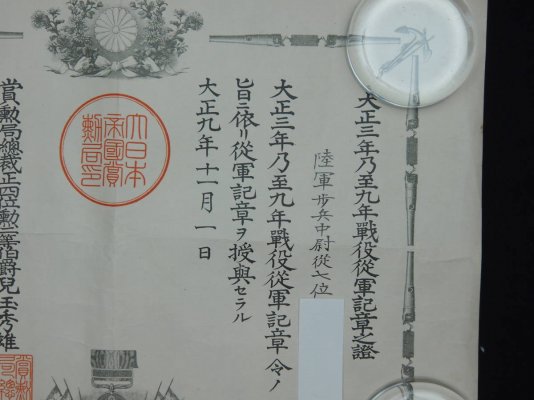 大正三年乃至九年戰役從軍記章之證
陸軍歩兵中尉從七位
大正三年乃至九年戰役從軍記章令ノ
旨ニ依リ從軍記章ヲ授與セラル
大正九年十一月一日
大日本
帝國賞
勳局印
賞勳局總裁正四位勲二等伯爵兒玉秀雄